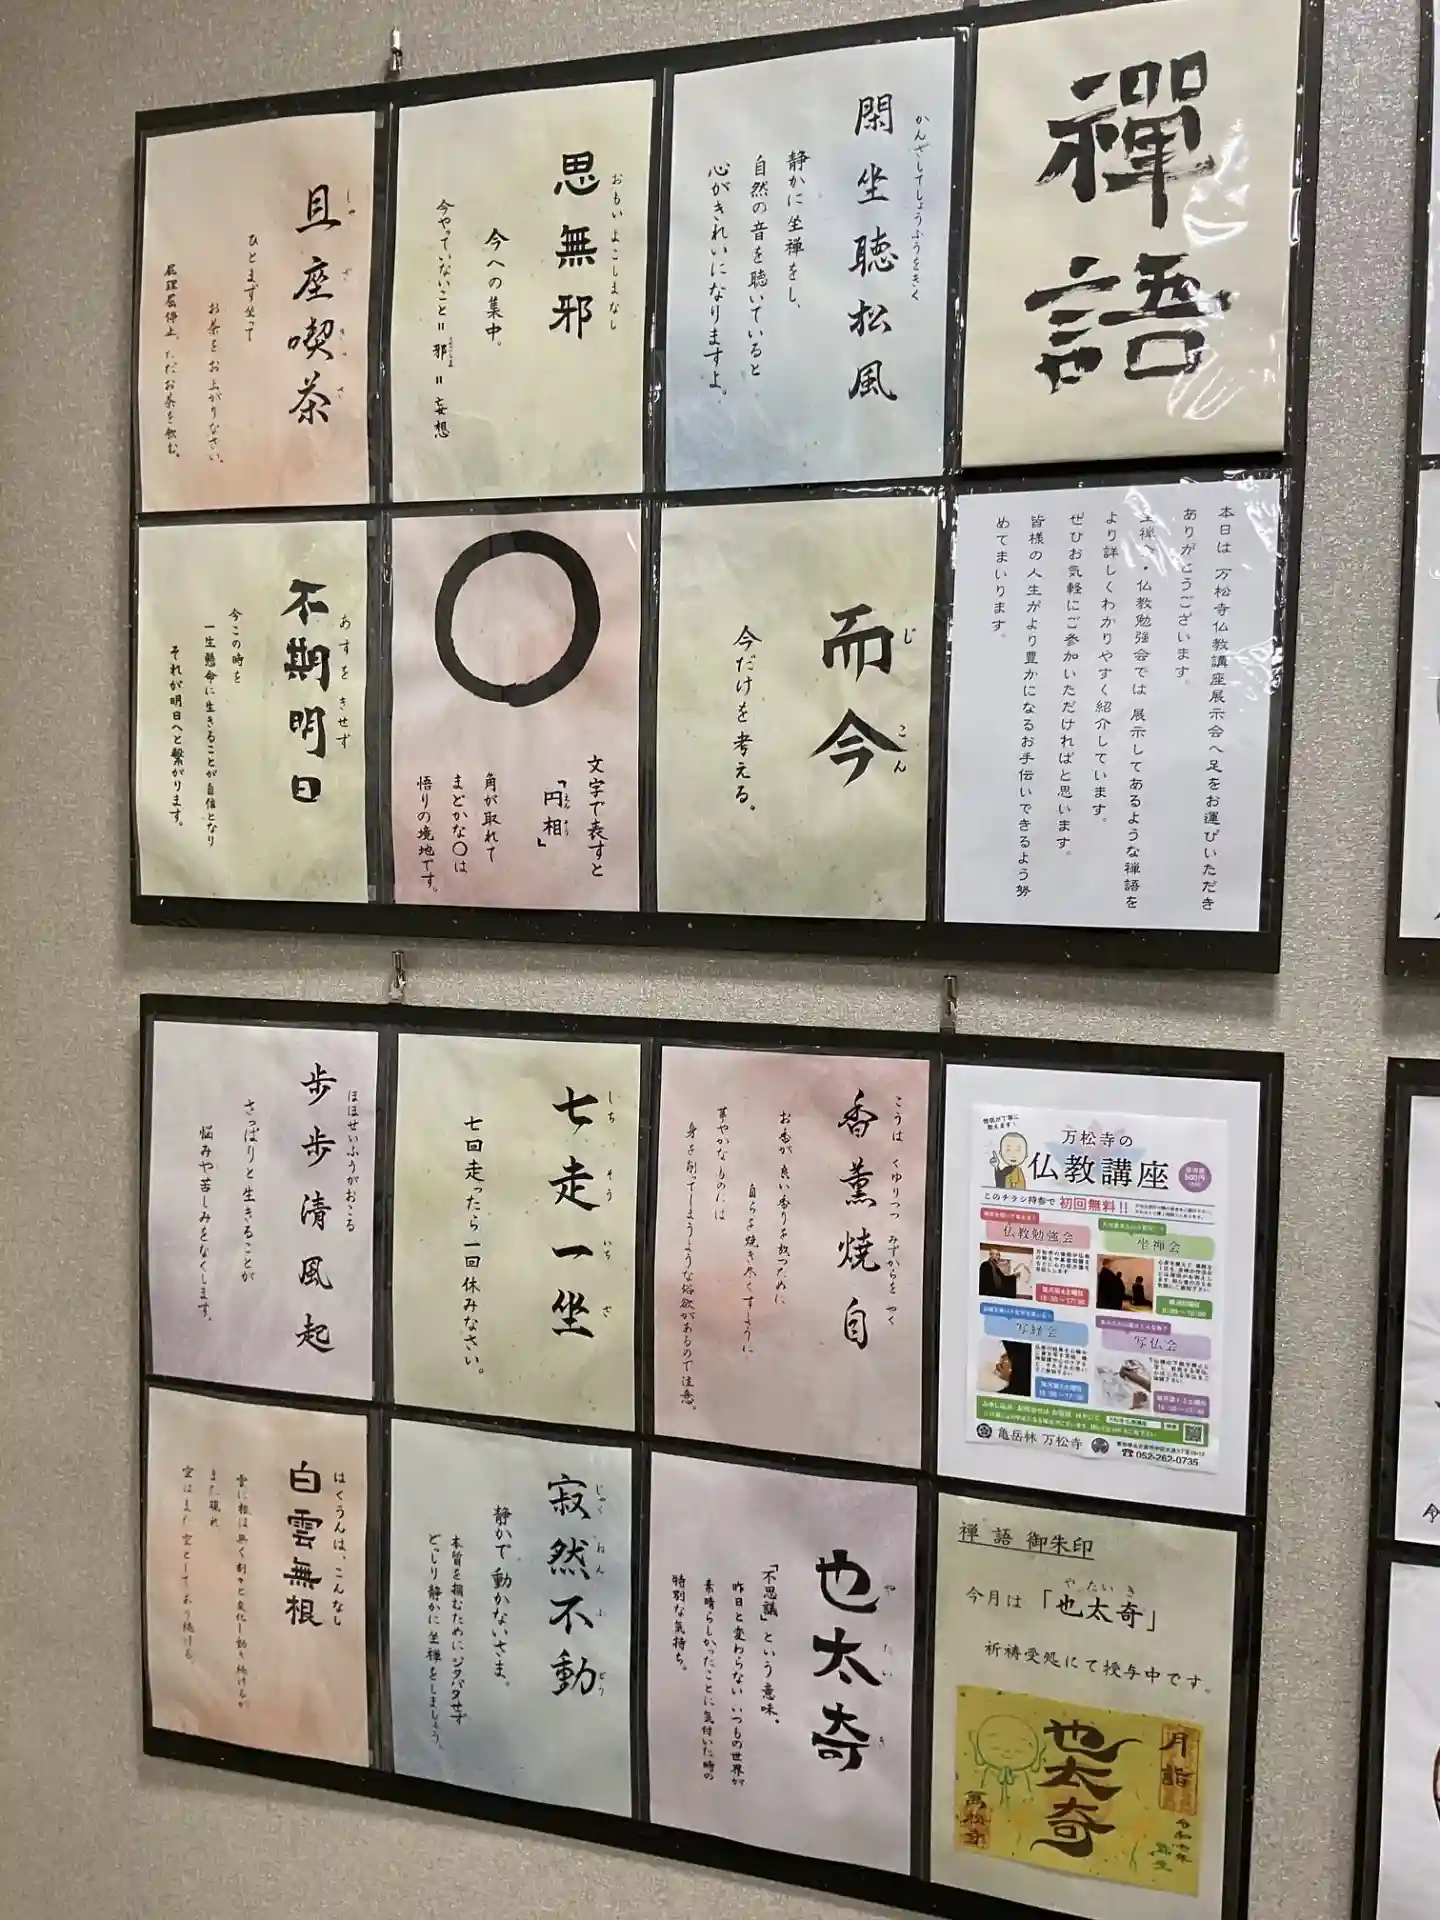 禪語
閑坐聴松風
かんざしてしょうふうをきく
静かに坐禅をし、
自然の音を聴いていると
心がきれいになりますよ。
思無邪
おもいよこしまなし
今への集中。
今やっていないこと=邪=妄想
よこしま
且座喫茶
しゃざきっさ
ひとまず坐って
お茶をお上がりなさい。
屁理屈停止。ただお茶を飲む。
本日は万松寺仏教講座展示会へ足をお運びいただき
ありがとうございます。
坐禅会・仏教勉強会では展示してあるような禅語を
より詳しくわかりやすく紹介しています。
ぜひお気軽にご参加いただければと思います。
皆様の人生がより豊かになるお手伝いできるよう努
めてまいります。
而今
じこん
今だけを考える。
文字で表すと
「円相」
えんそう
角が取れて
まどかな〇は
悟りの境地です。
不期明日
あすをきせず
今この時を
一生懸命に生きることが自信となり
それが明日へと繋がります。
万松寺の
仏教講座
500円
このチラシ持参で 初回無料!!
仏教勉強会
坐禅会
写経会
写仏会
亀岳林 万松寺
☎052-262-0735
香薫焼自
こうは くゆりつつ みずからを やく
お香が良い香りを放つために
自らを焼き尽くすように
華やかなものには
身を削ってしまうような俗欲があるので注意。
七走一坐
しちそういちざ
七回走ったら一回休みなさい。
歩歩清風起
ほほせいふうがおこる
さっぱりと生きることが
悩みや苦しみをなくします。
禅語 御朱印
今月は「也太奇」
やたいき
祈祷受処にて授与中です。
也太奇
月詣
萬松寺
也太奇
やたいき
「不思議」という意味。
昨日と変わらないいつもの世界が
素晴らしかったことに気付いた時の
特別な気持ち。
寂然不動
じゃくねんふどう
静かで動かないさま。
本質を掴むためにジタバタせず
どっしり静かに坐禅をしましょう。
白雲無根
はくうんは、こんなし
雲に根は無く刻々と変化し動き続けるが
また現れ
空はまた空としてあり続ける。